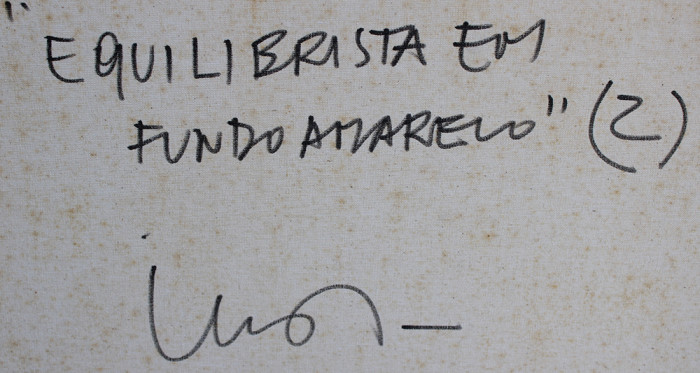 "EQUILIBRISTA EM
FUNDO AMARELO" (2)